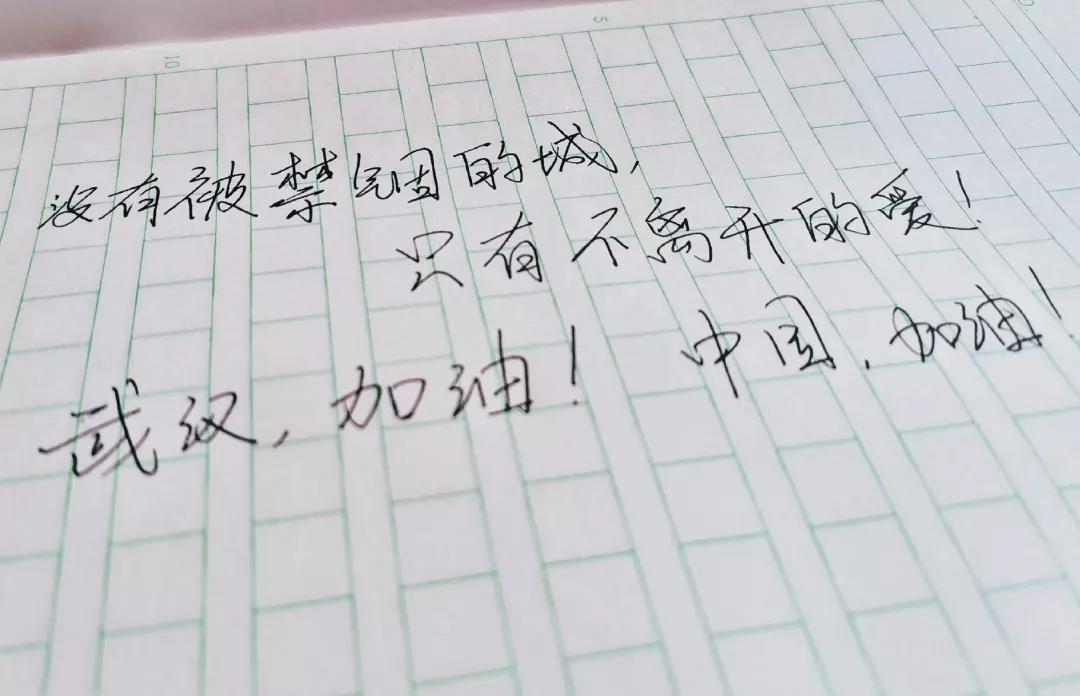 10
5
没有被禁锢的城,
只有不离开的爱!
武汉,加油! 中国,加油!